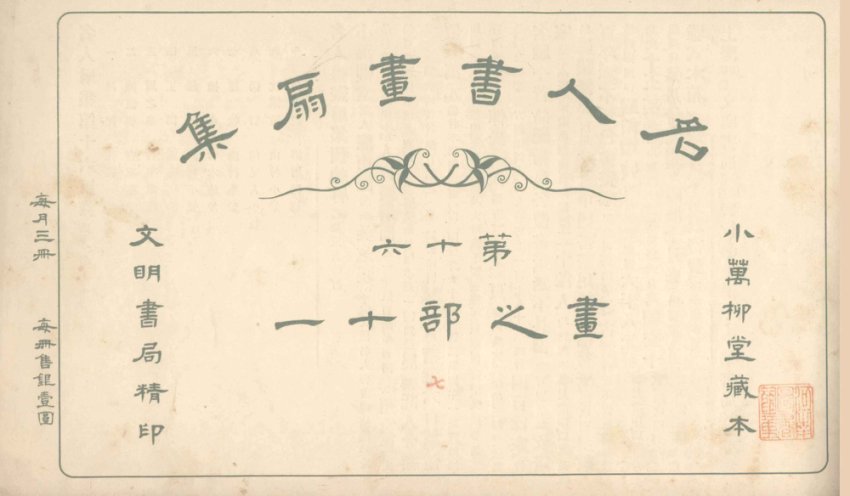 名人書畫扇集
第十六
畫之部十一
七
小萬柳堂藏本
文明書局精印
每月三冊 每冊售銀壹圓